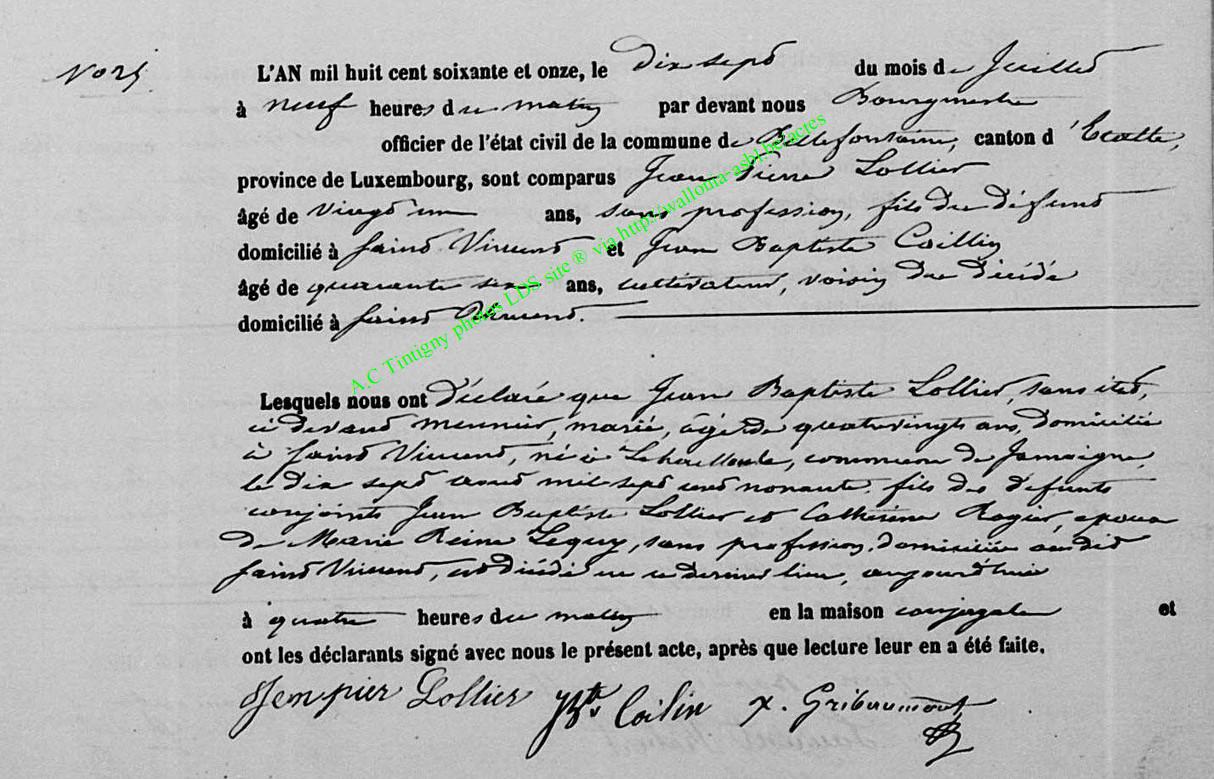 N° 25
L'AN mil huit cent soixante et onze, le dix sept du mois de Juillet
à neuf heures du matin par devant nous Bourgmestre
officier de l'état civil de la commune de Bellefontaine, canton d'Etalle,
province de Luxembourg, sont comparus Jean Pierre Lollier
âgé de vingt un ans, sans profession, fils du défunt
domicilié à Saint Vincent et Jean Baptiste Coillin
âgé de quarante ans, cultivateur, voisin du décédé
domicilié à Saint Vincent.
Lesquels nous ont déclaré que Jean Baptiste Lollier, sans état,
ci devant meunier, marié, âgé de quatrevingts ans, domicilié
à Saint Vincent, né à commune de Jamoigne,
le dix sept août mil sept cent nonante, fils des défunts
conjoints Jean Baptiste Lollier et Catherine Rogier, époux
de Marie Reine Lequy, sans profession, domiciliée audit
Saint Vincent, est décédé en ce dernier lieu, aujourd'hui
à quatre heures du matin en la maison conjugale et
ont les déclarants signé avec nous le présent acte, après que lecture leur en a été faite.
Jempier Lollier Jbte Coilin X. Gribaumont
A.C Tintigny photos LDS site ® via http://wallonia-asbl.be/actes